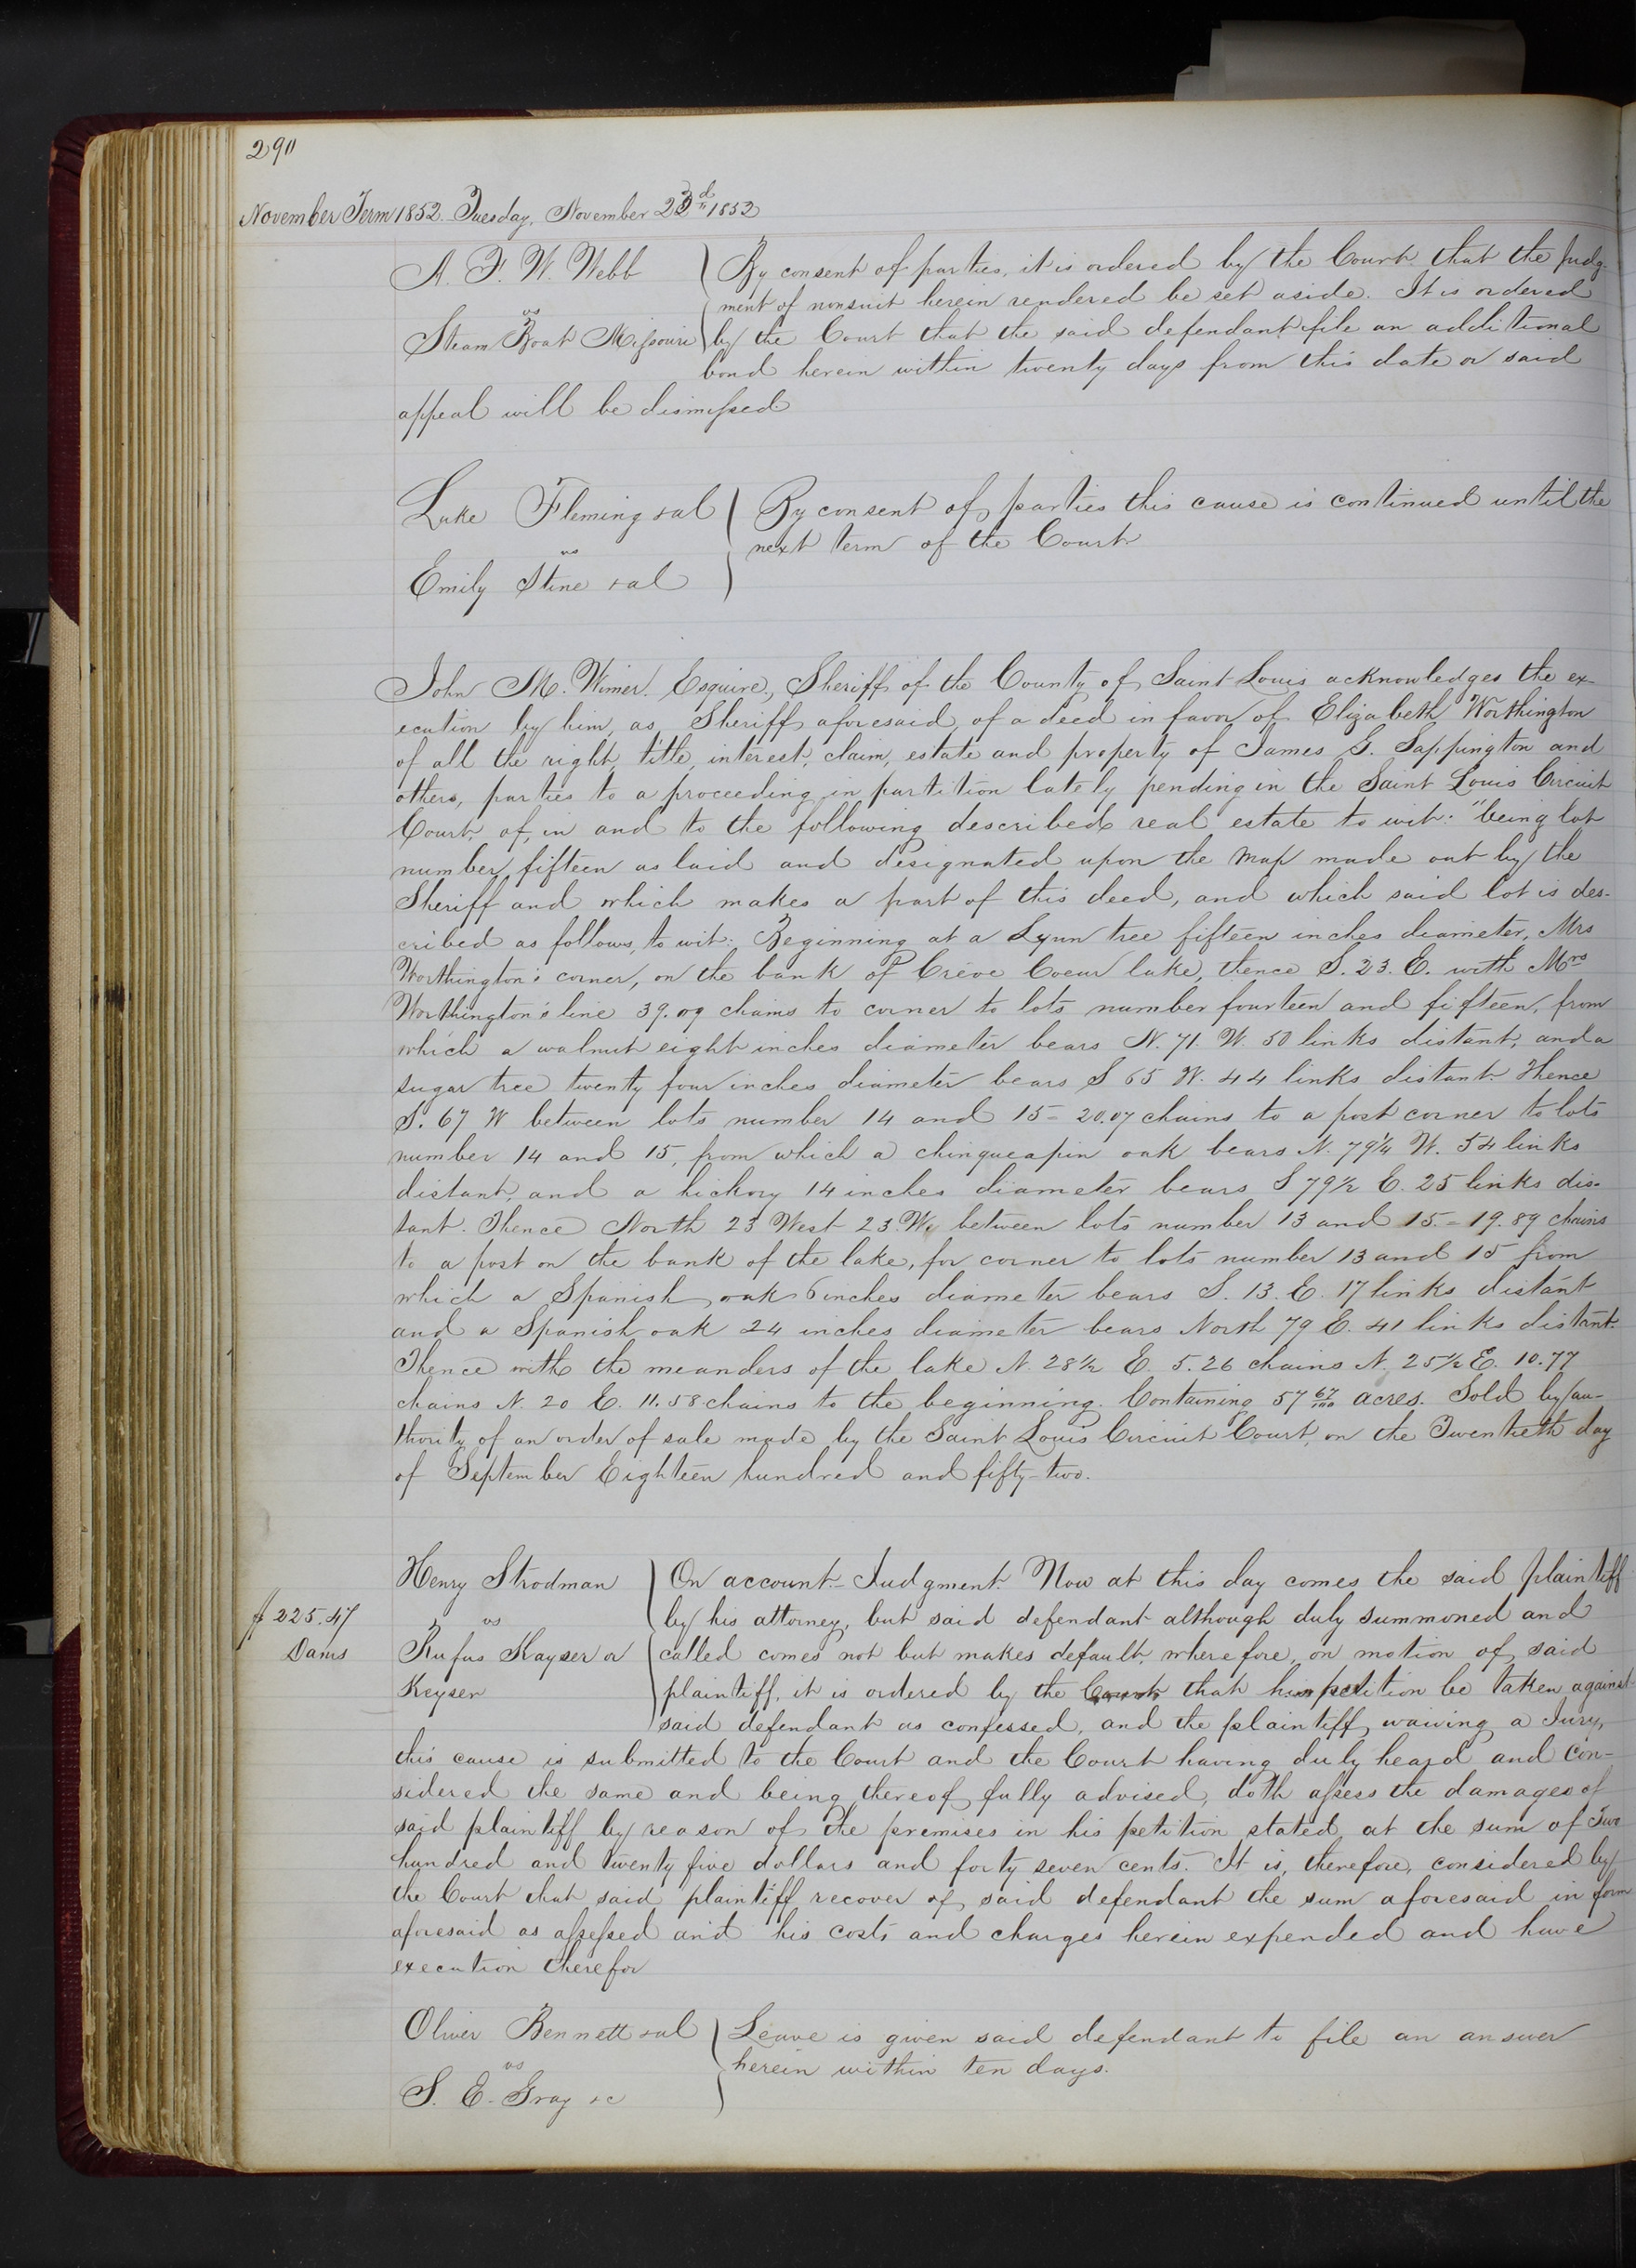 290
November Term 1852. Tuesday, November 23d 1852
A. F. W. Webb
vs
Steam Boat Missouri
By consent of parties, it is ordered by the Court that the judg-
ment of nonsuit herein rendered be set aside. It is ordered
by the Court that the said defendant file an additional
bond herein within twenty days from this date or said
appeal will be dismissed
Luke Fleming & al
vs
Emily Stine & al
By consent of parties this cause is continued until the
next term of the Court
John M. Wimer. Esquire, Sheriff of the County of Saint Louis acknowledges the ex-
ecution by him, as Sheriff aforesaid, of a deed in favor of Elizabeth Worthington
of all the right, title, interest, claim, estate and property of James G. Sappington and
others, parties to a proceeding in partition lately pending in the Saint Louis Circuit
Court, of, in and to the following described real estate to wit: "being lot
number fifteen as laid and designated upon the map made out by the
Sheriff and which makes a part of this deed, and which said lot is des-
cribed as follows, to wit: Beginning at a Lynn tree fifteen inches diameter, Mrs
Worthington's corner, on the bank of Creve Coeur lake, thence S. 23. E. with Mrs
Worthington's line 39.09 chains to corner to lots number fourteen and fifteen, from
which a walnut eight inches diameter bears N. 71. W. 50 links distant, and a
sugar tree twenty four inches diameter bears S 65 W. 44 links distant. Thence
S. 67 W between lots number 14 and 15 - 20.07 chains to a post corner to lots
number 14 and 15, from which a chinqueapin oak bears N. 79¼ W. 54 links
distant, and a hickory 14 inches diameter bears S 79½ E. 25 links dis-
tant. Thence North 23 West 23. W. between lots number 13 and 15. - 19.89 chains
to a post on the bank of the lake, for corner to lots number 13 and 15 from
which a Spanish oak 6 inches diameter bears S. 13. E. 17 links distant
and a Spanish oak 24 inches diameter bears North 79 E. 41 links distant.
Thence with the meanders of the lake N. 28½ E. 5.26 chains N. 25½ E. 10.77
chains N. 20 E. 11.58 chains to the beginning. Containing 57 67/100 acres. Sold by au-
thority of an order of sale made by the Saint Louis Circuit Court, on the Twentieth day
of September Eighteen hundred and fifty-two.
$225.47
Dams
Henry Strodman
vs
Rufus Kayser or
Keyser
On account - Judgment. Now at this day comes the said plaintiff
by his attorney, but said defendant although duly summoned and
called comes not but makes default, wherefore, on motion of said
plaintiff, it is ordered by the Court that his petition be taken against
said defendant as confessed, and the plaintiff waiving a Jury,
this cause is submitted to the Court and the Court having duly heard and con-
sidered the same and being thereof fully advised, doth assess the damages of
said plaintiff by reason of the premises in his petition stated at the sum of Two
hundred and twenty five dollars and forty seven cents. It is, therefore, considered by
the Court that said plaintiff recover of said defendant the sum aforesaid in form
aforesaid as assessed and his costs and charges herein expended and have
execution therefor
Oliver Bennett & al
vs
S. E. Gray &c
Leave is given said defendant to file an answer
herein within ten days.